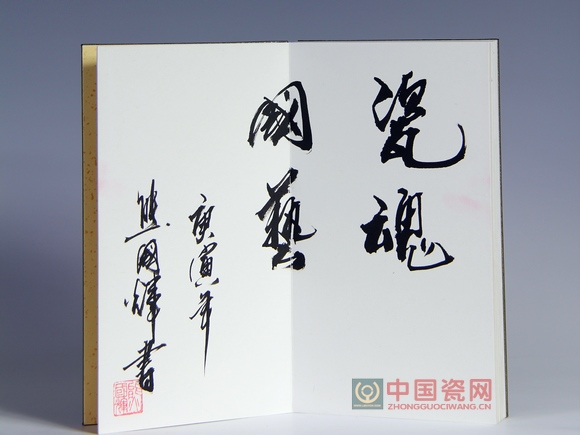 瓷魂
國藝
庚寅年
熊國輝書
中国瓷网
ZHONGGUOCIWANG.CN